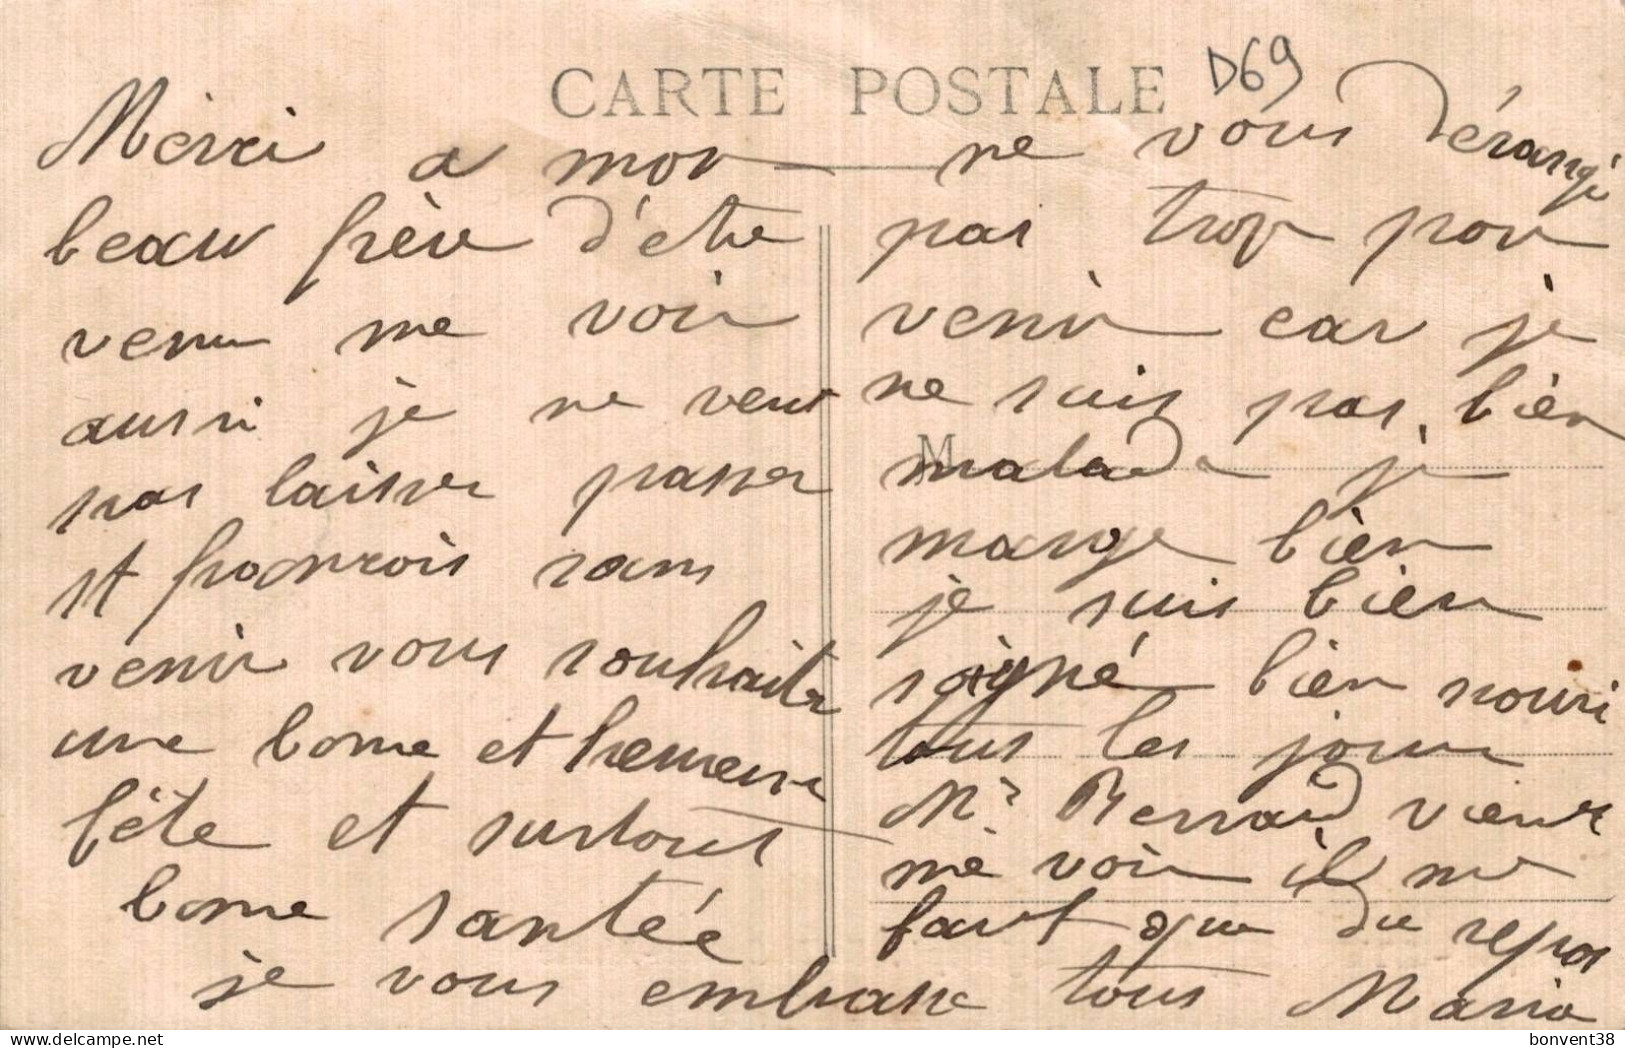 CARTE POSTALE
D69
Merci a mon
beau frère d'etre
venu me voir
aussi je ne veut
pas laisser passer
st francois sans
venir vous souhaiter
une bonne et heureuse
fête et surtout
bonne santée
je vous embrasse tous Maria
ne vous dérangé
pas trop pour
venir car je
ne suis pas bien
M
malade je
mange bien
je suis bien
soigné bien nouri
tous les jour
Mr Bernard vient
me voir il me
faut que du repos
delcampe.net
bonvent38